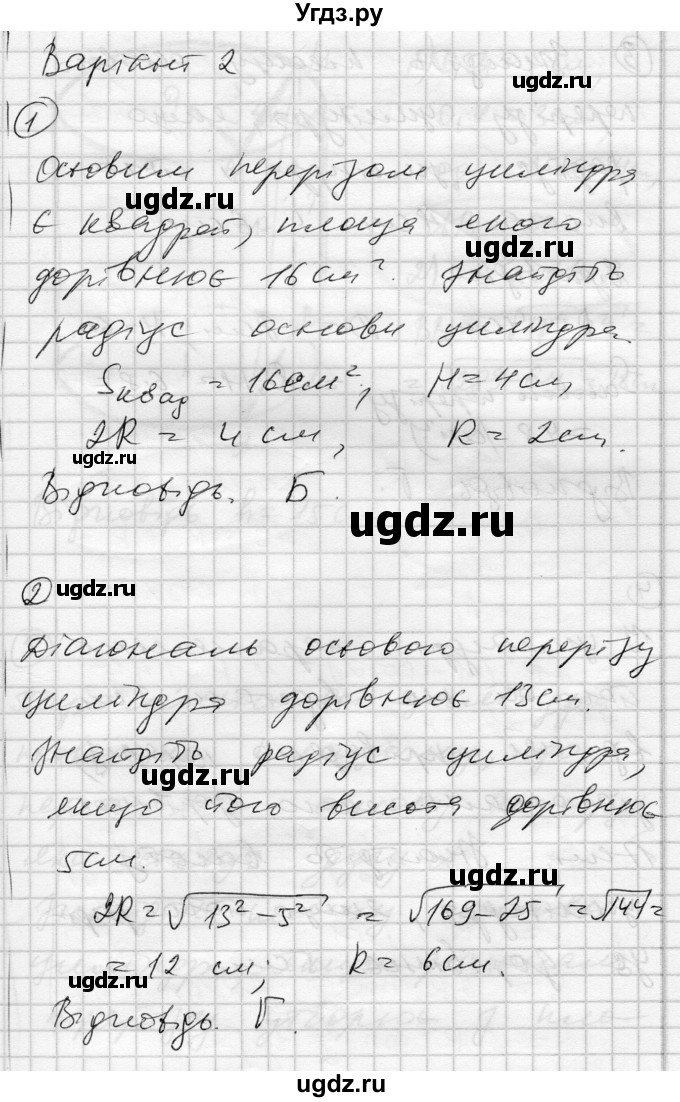 Угдз.ру
Варіант 2
1
Осьовим перерізом циліндра
є квадрат, площа якого
дорівнює 16 см². Знайдіть
радіус основи циліндра.
Sквад = 16 см², H = 4 см,
2R = 4 см, R = 2 см.
Відповідь. Б.
2
Діагональ осьового перерізу
циліндра дорівнює 13 см.
Знайдіть радіус циліндра,
якщо його висота дорівнює
5 см.
2R = √13² – 5² = √169 – 25 = √144 =
= 12 см; R = 6 см.
Відповідь. Г.
ugdz.ru
ugdz.ru
ugdz.ru
ugdz.ru
ugdz.ru
ugdz.ru
ugdz.ru
ugdz.ru
ugdz.ru
ugdz.ru